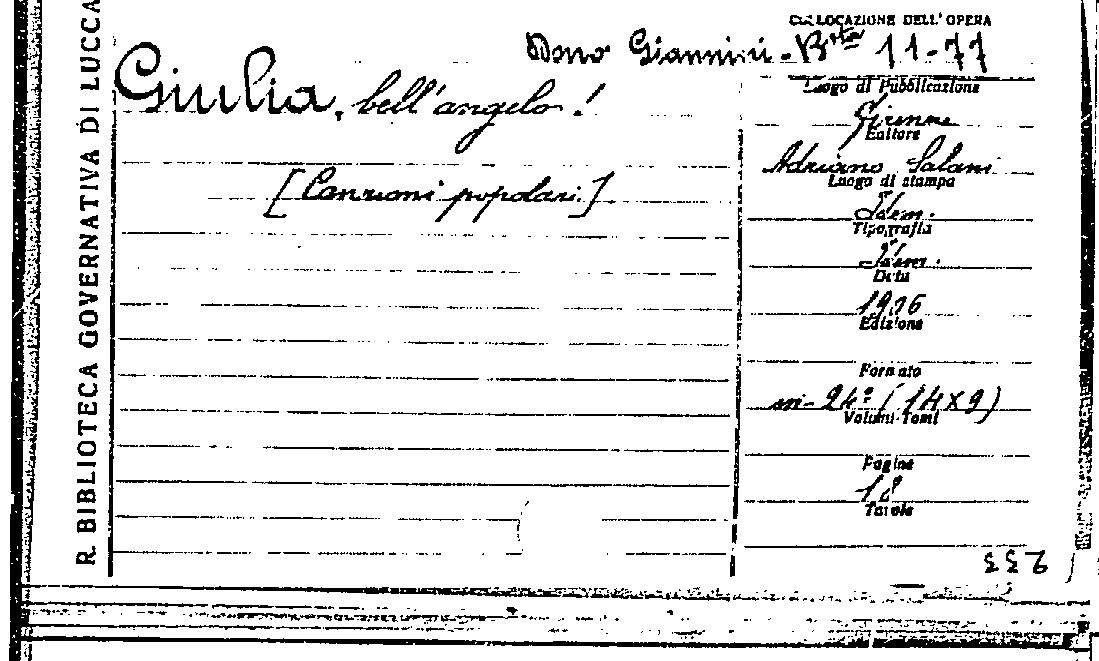 R. BIBLIOTECA GOVERNATIVA DI LUCCA
COLLOCAZIONE DELL'OPERA
Dono Giannini - Bta 11-77
Giulia, bell'angelo!
[Canzoni popolari.]
Luogo di Pubblicazione
Firenze
Editore
Adriano Salani
Luogo di stampa
Idem.
Tipografia
Idem.
Data
1906
Edizione
Formato
in-24° (14x9)
Volumi-Tomi
Pagine
18
Tavole